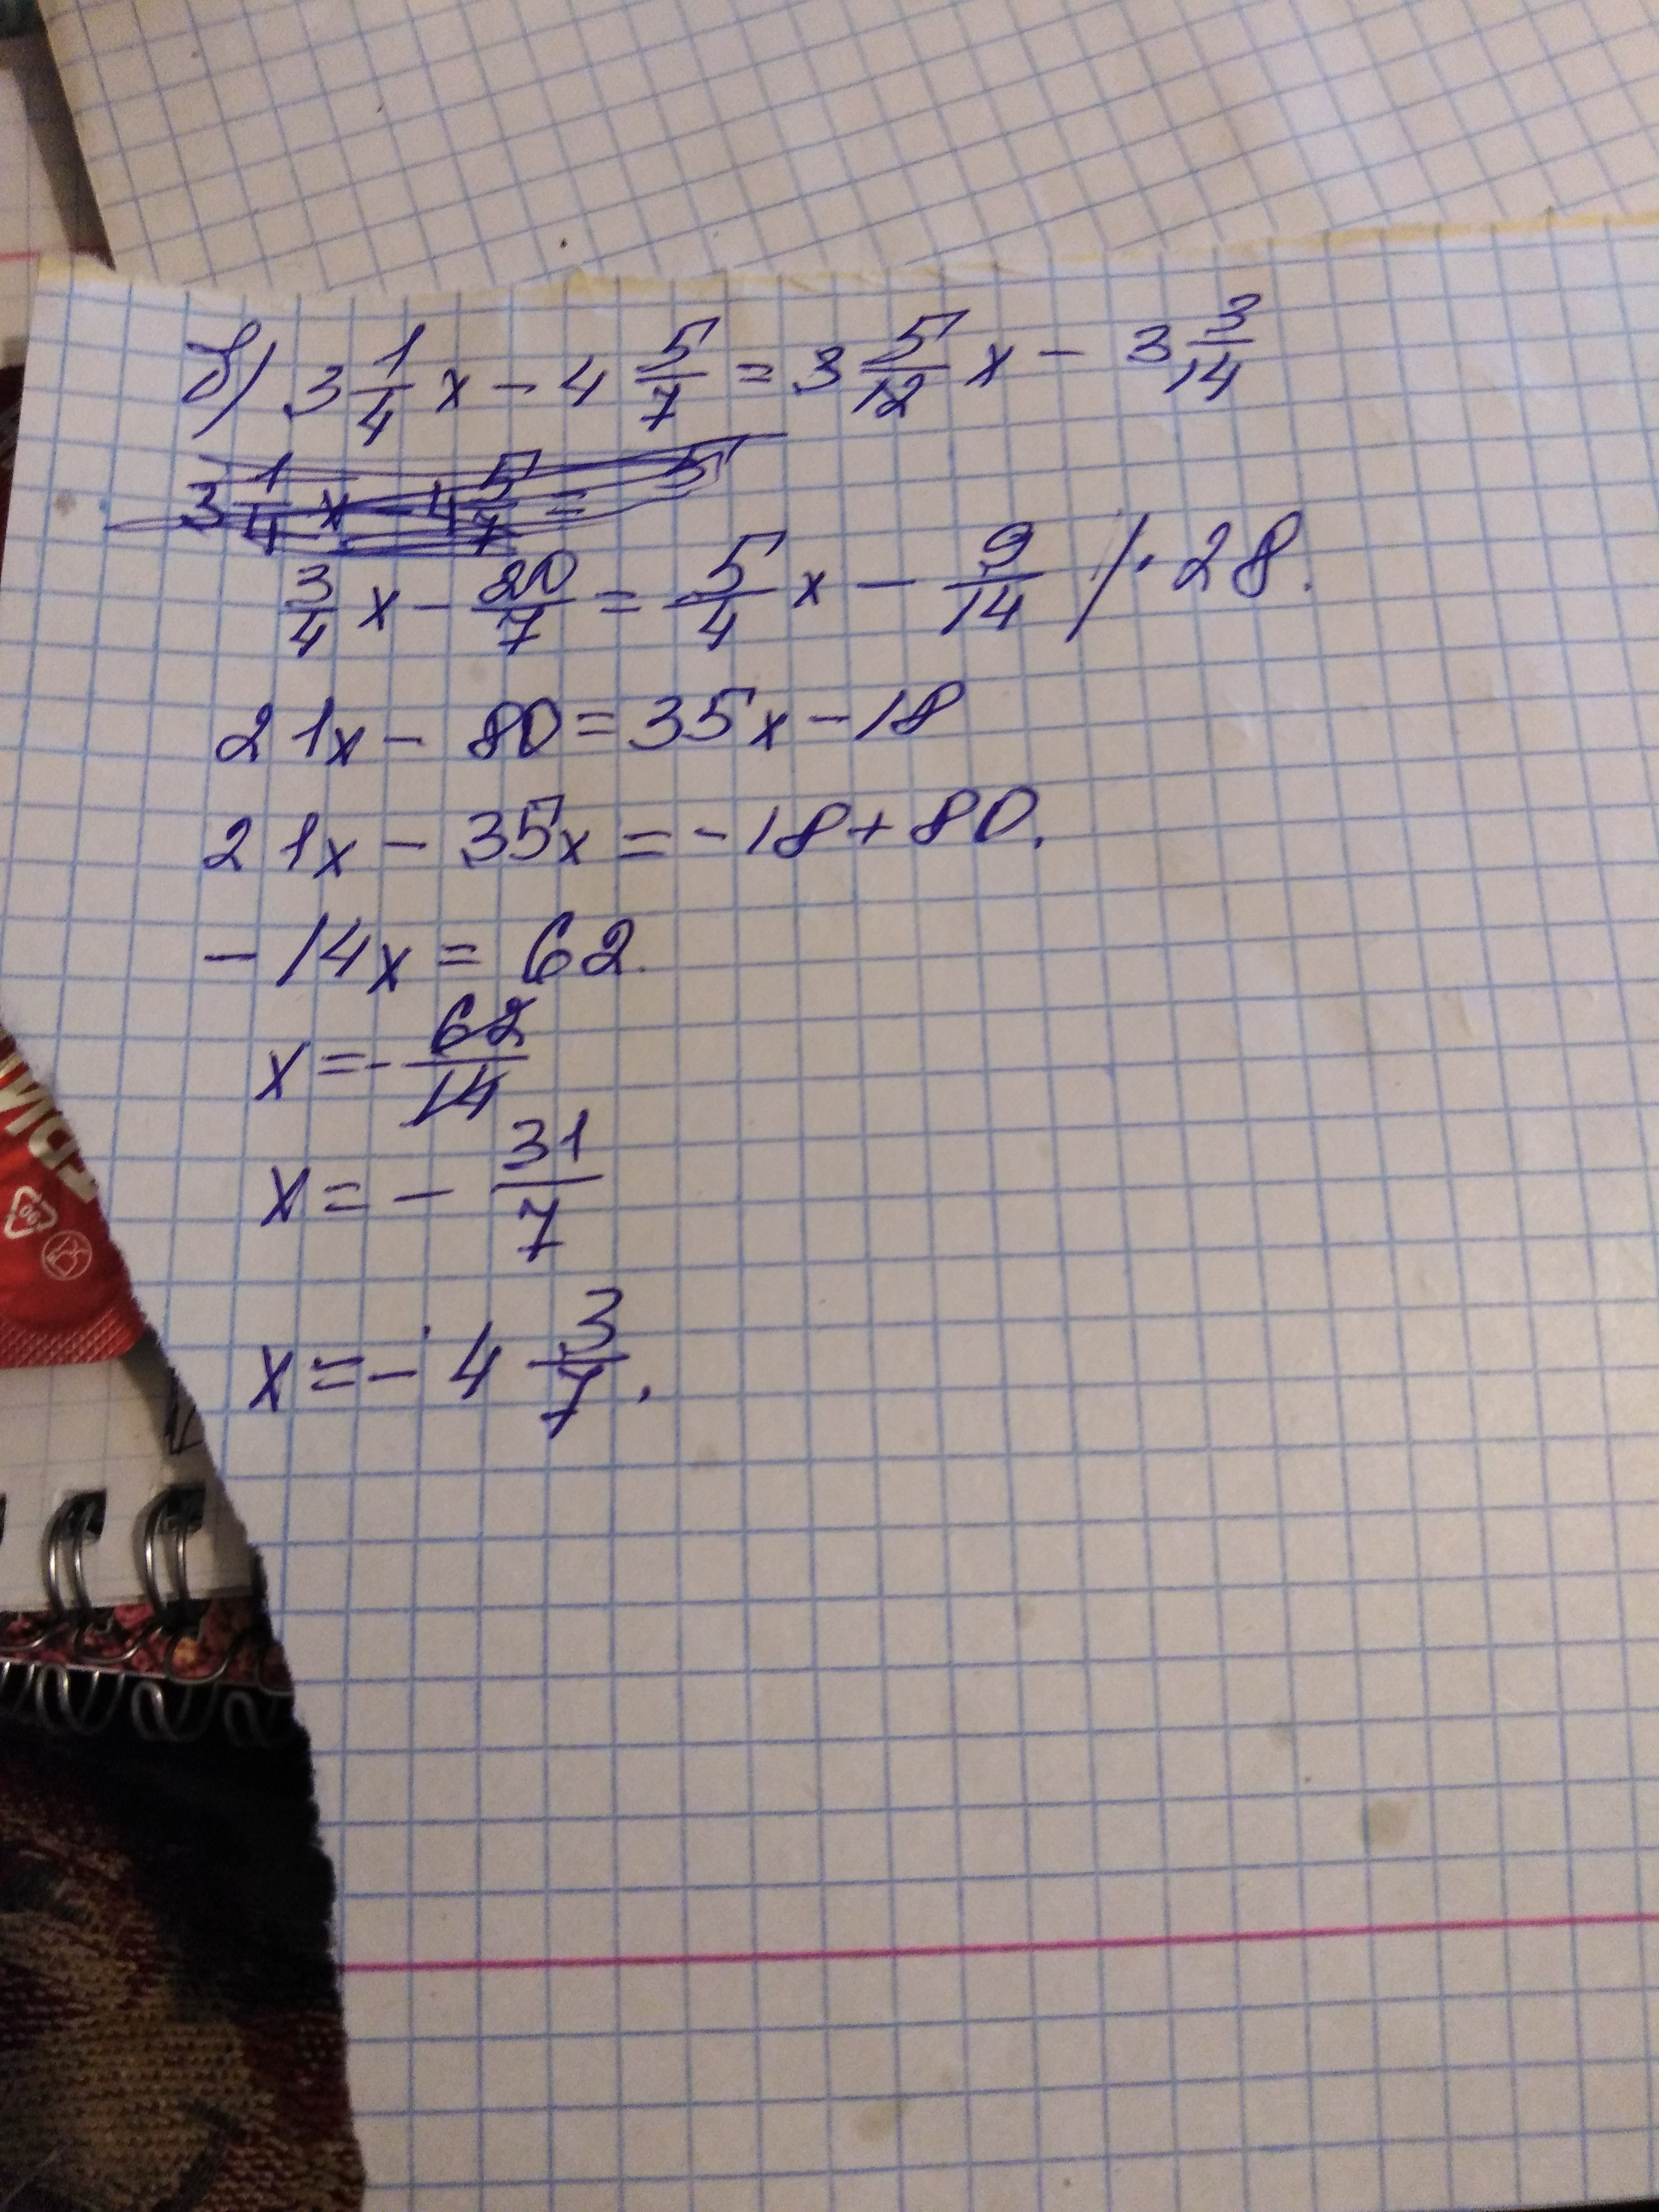 б) 3 1/4 x - 4 5/7 = 3 5/12 x - 3 3/14
3 1/4 x - 4 5/7 = 5
3/4 x - 20/7 = 5/4 x - 9/14 /· 28.
21x - 80 = 35x - 18
21x - 35x = -18 + 80.
- 14x = 62.
x = - 62/14
x = - 31/7
x = - 4 3/7.